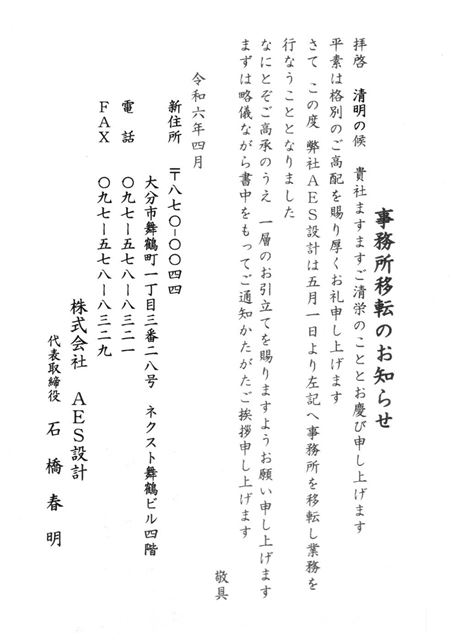 事務所移転のお知らせ
拝啓　清明の候　貴社ますますご清栄のこととお慶び申し上げます
平素は格別のご高配を賜り厚くお礼申し上げます
さて　この度　弊社ＡＥＳ設計は五月一日より左記へ事務所を移転し業務を
行なうこととなりました
なにとぞご高承のうえ　一層のお引立てを賜りますようお願い申し上げます
まずは略儀ながら書中をもってご通知かたがたご挨拶申し上げます
敬具
令和六年四月
新住所　〒八七〇－〇〇四四
大分市舞鶴町一丁目三番二八号　ネクスト舞鶴ビル四階
電　話　〇九七－五七八－八三二一
ＦＡＸ　〇九七－五七八－八三二九
株式会社　ＡＥＳ設計
代表取締役　石　橋　春　明